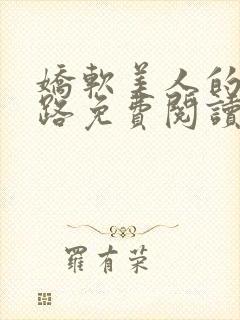 嬌軟美人的
路免費閱讀
羅有荣